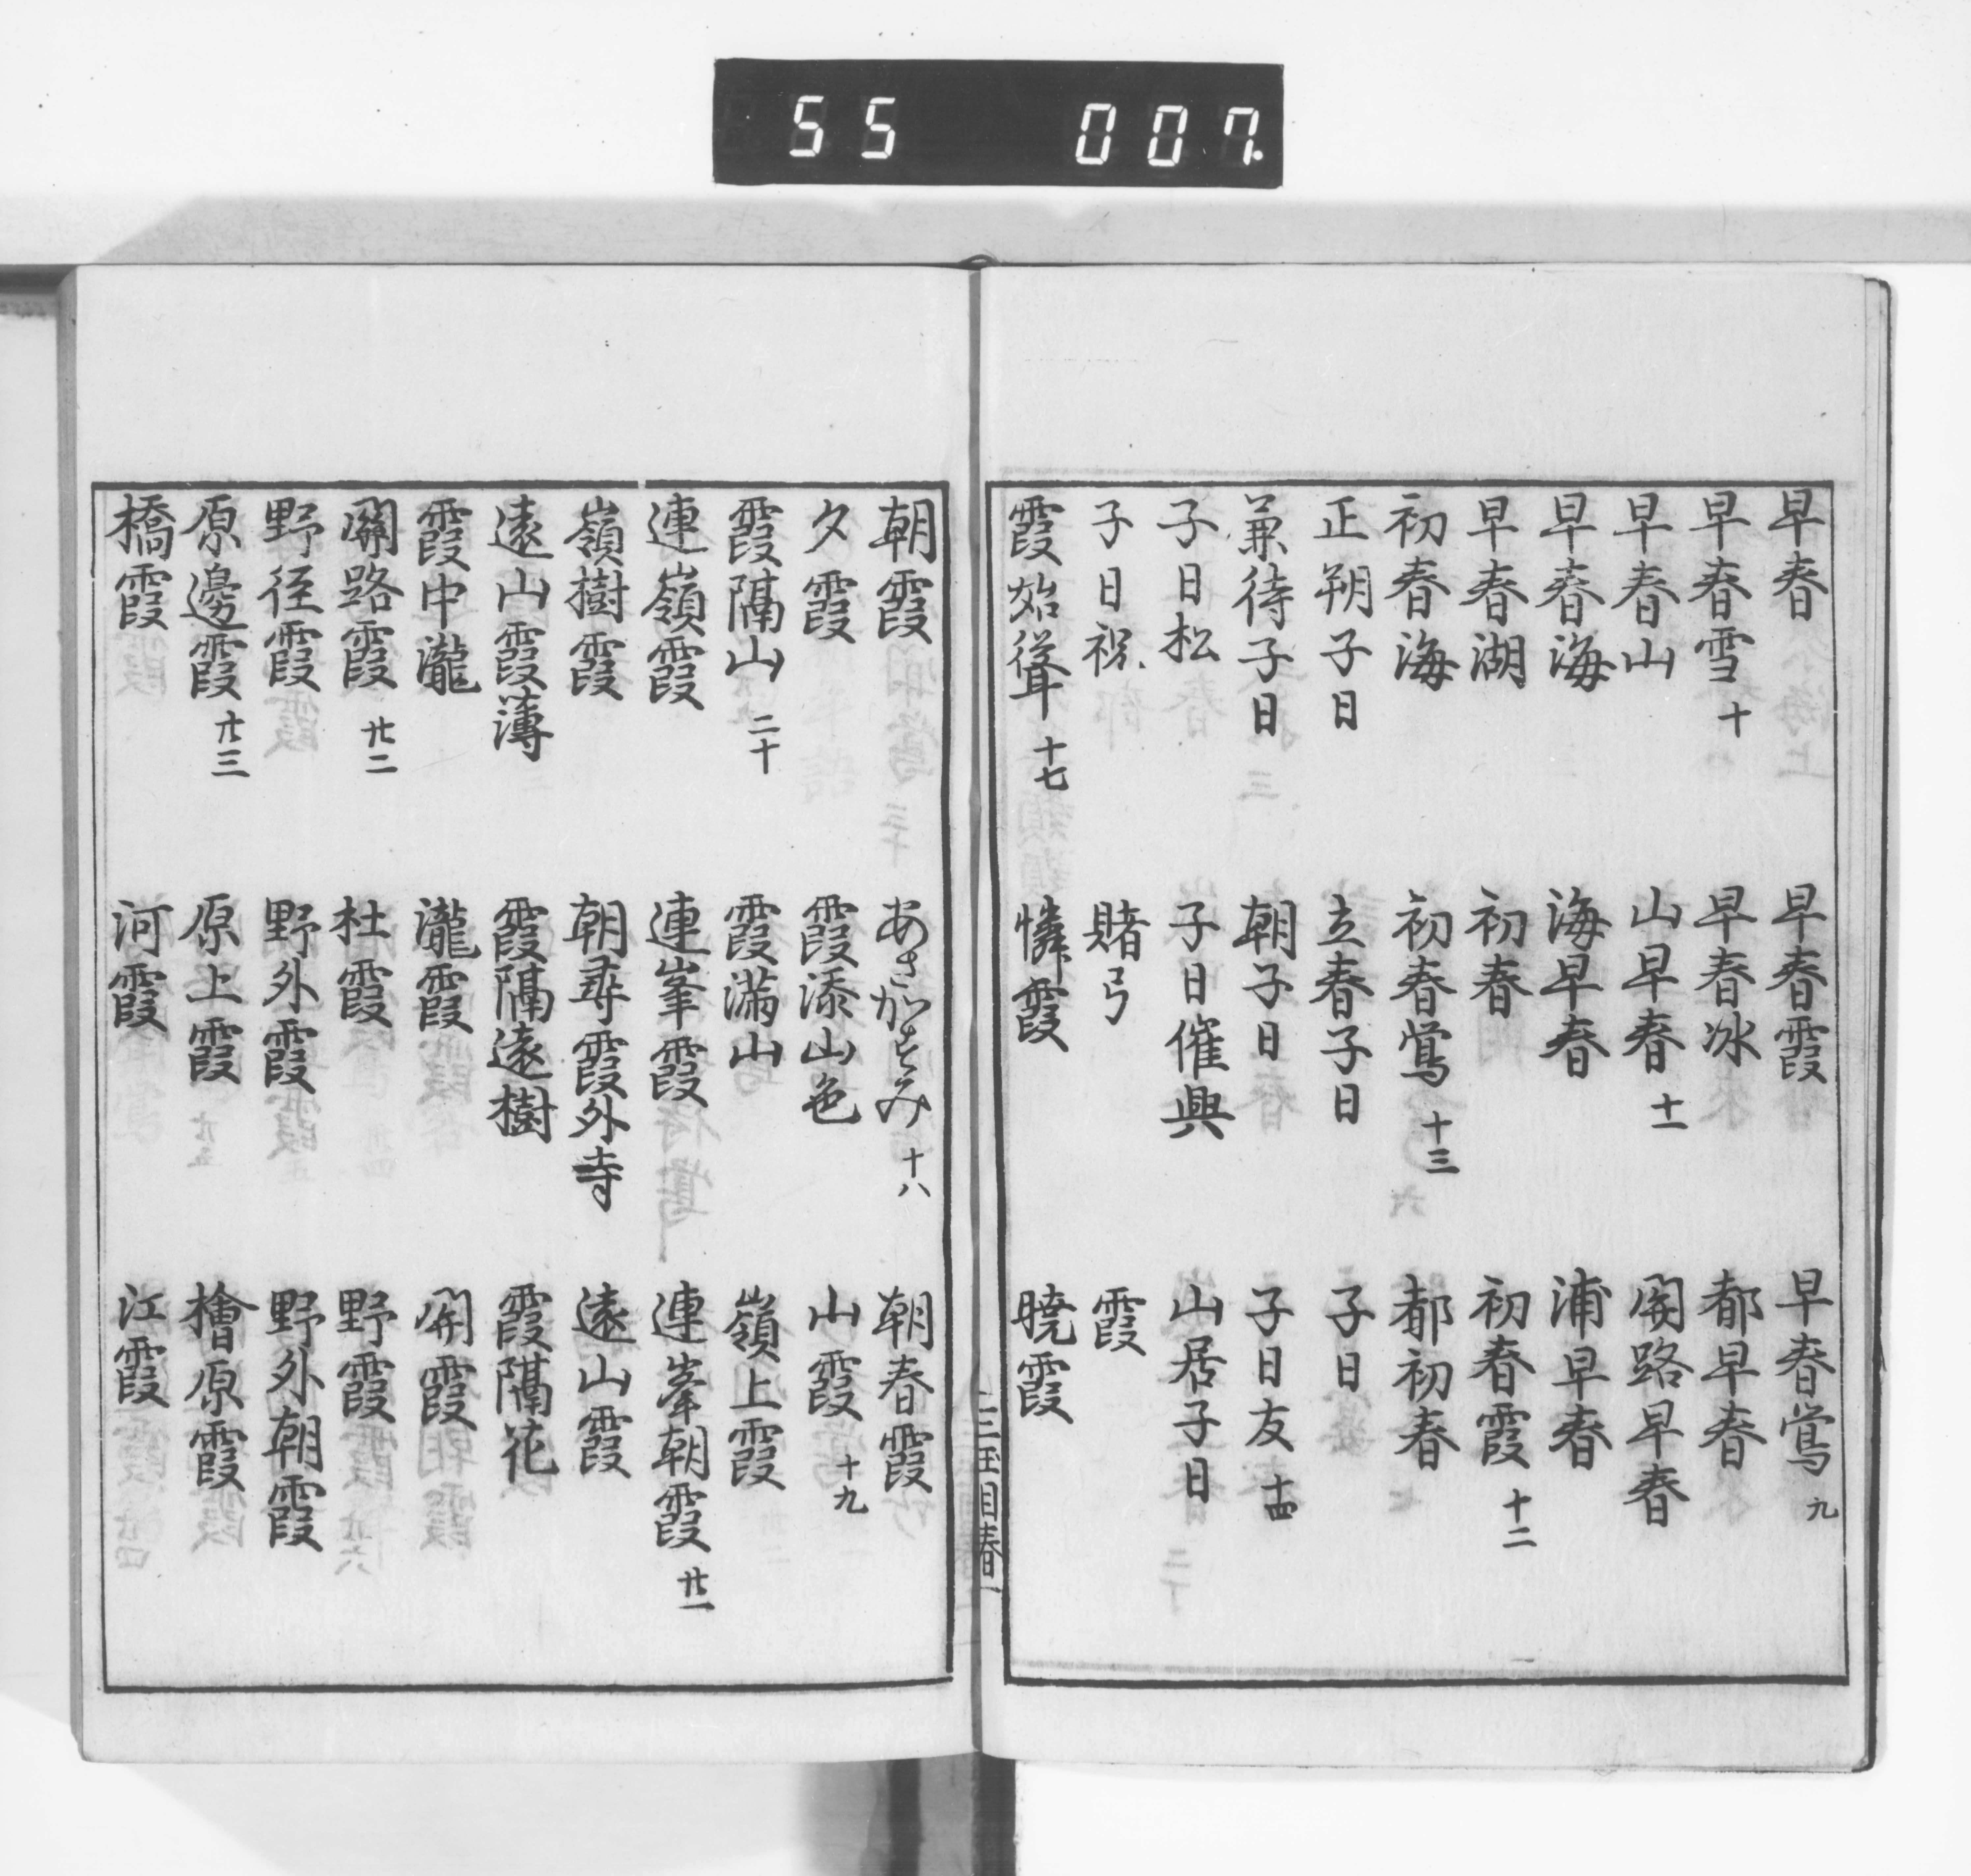 55 007.
早春 早春霞 早春鴬 九
早春雪 十 早春冰 都早春
早春山 山早春 十一 関路早春
早春海 海早春 浦早春
早春湖 初春 初春霞 十二
初春海 初春鴬 十三 都初春
正朔子日 立春子日 子日
兼待子日 朝子日 子日友 十四
子日松 子日催興 山居子日
子日祝 賭弓 霞
霞始聳 十七 憐霞 暁霞
三玉目春一
朝霞 あさかすみ 十八 朝春霞
夕霞 霞添山色 山霞 十九
霞隔山 二十 霞満山 嶺上霞
連嶺霞 連峯霞 連峯朝霞 廿一
嶺樹霞 朝尋霞外寺 遠山霞
遠山霞薄 霞隔遠樹 霞隔花
霞中瀧 瀧霞 関霞
関路霞 廿二 杜霞 野霞
野径霞 野外霞 野外朝霞
原邊霞 廿三 原上霞 檜原霞
橋霞 河霞 江霞